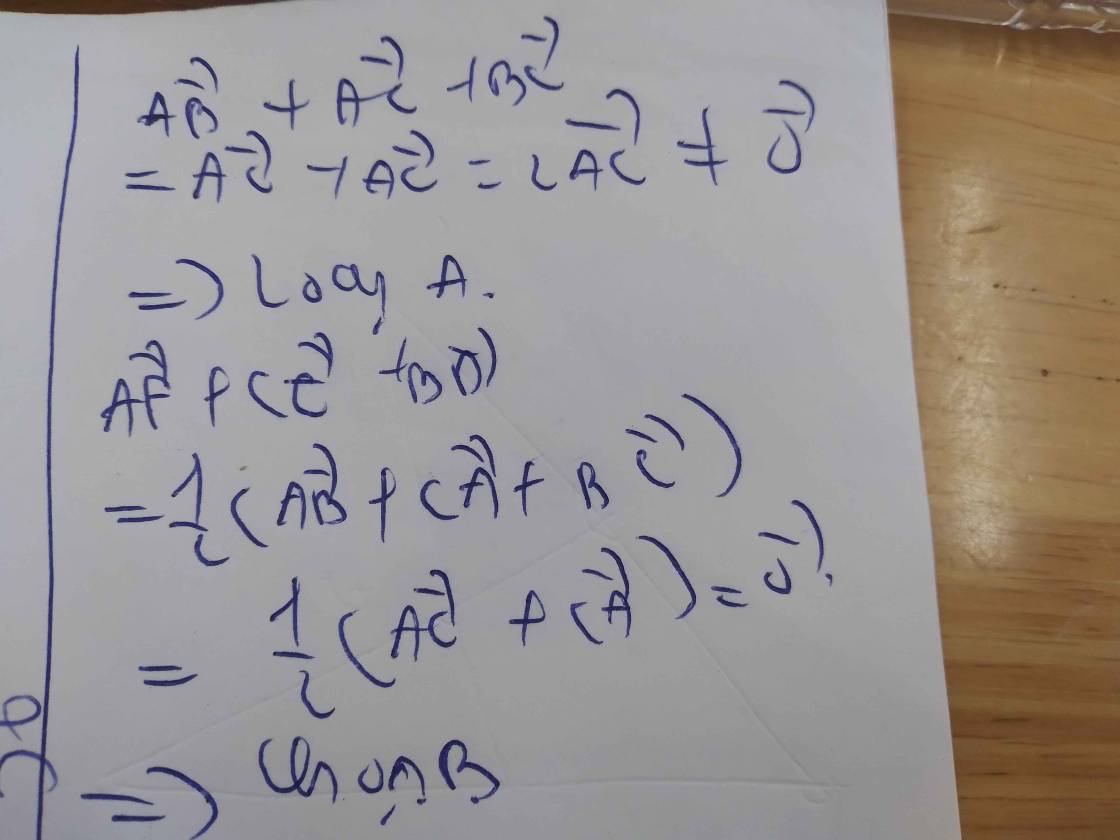 AB⃗ + AC⃗ + BC⃗
= AC⃗ + AC⃗ = 2AC⃗ ≠ 0⃗
=> Loại A.
AF⃗ + CE⃗ + BD⃗
= 1/2 (AB⃗ + CA⃗ + BC⃗)
= 1/2 (AC⃗ + CA⃗) = 0⃗.
=> Chọn B